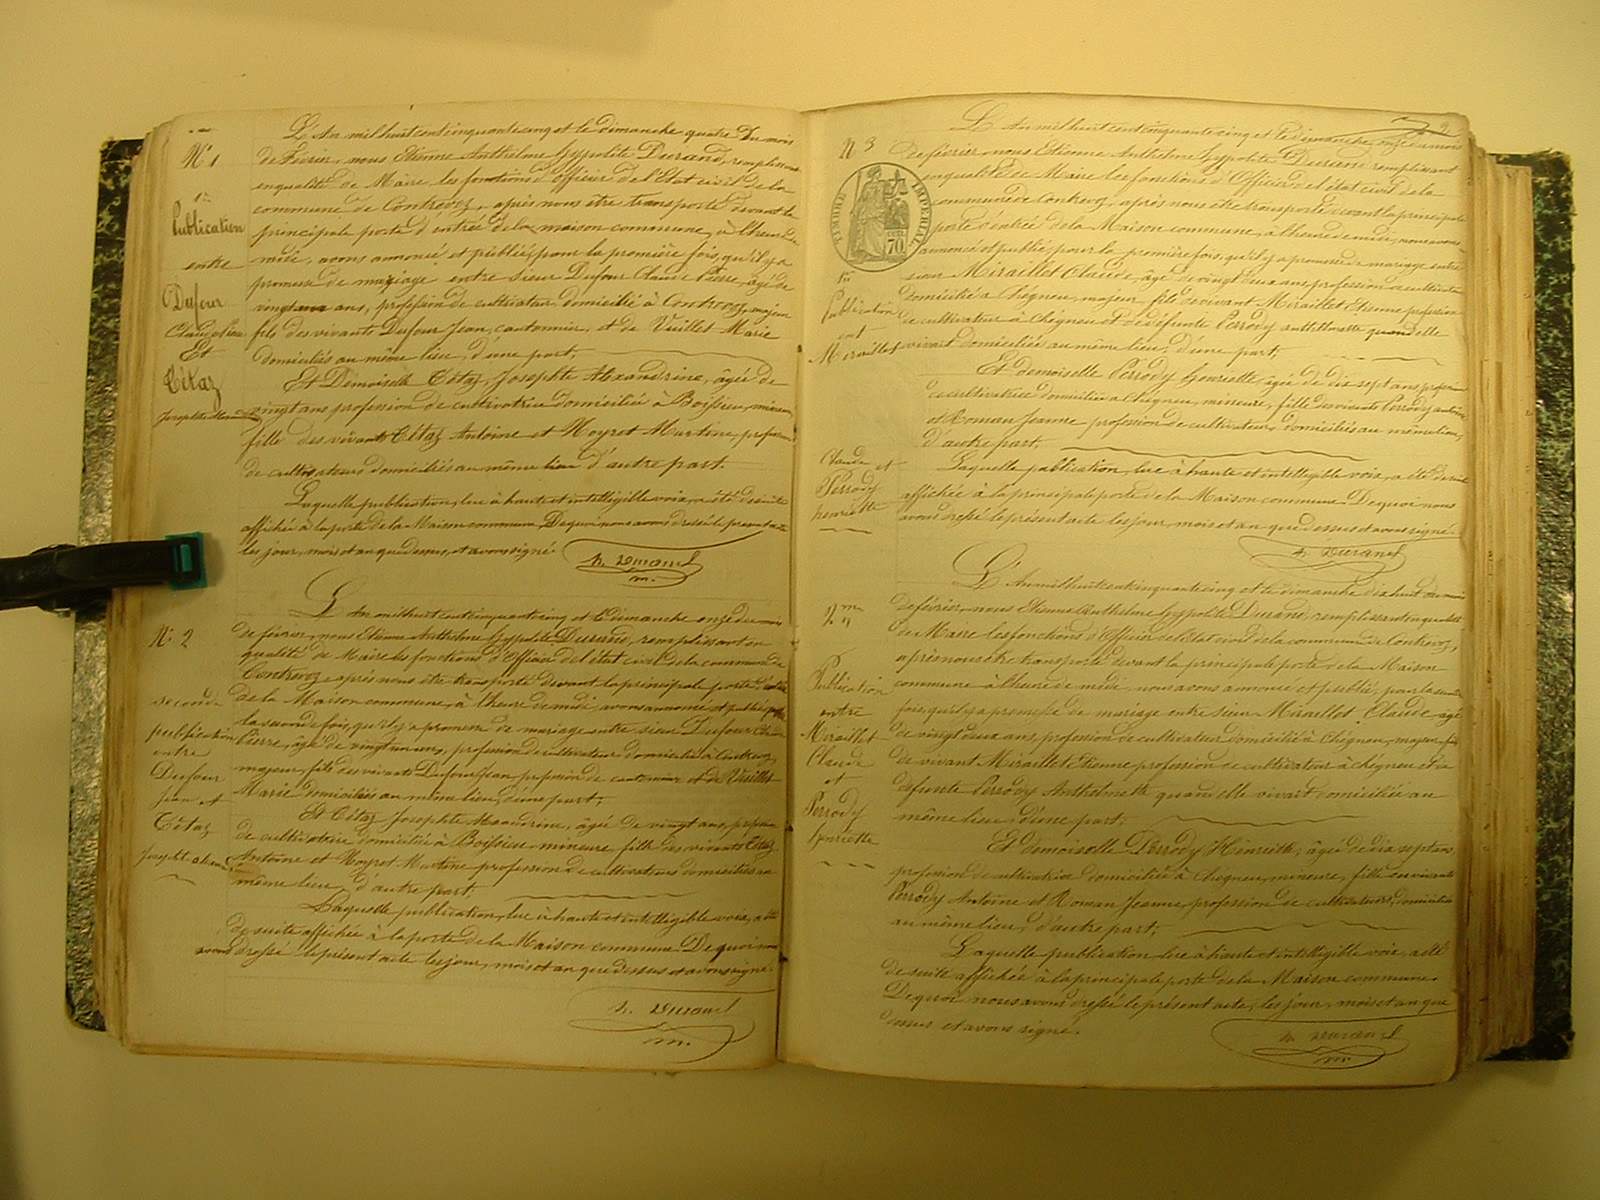 N° 1
1re
Publication
entre
Dufour
Claude Pierre
Et
Tétaz
Josephte Alexandrine
L'An mil huit cent cinquante cinq et le dimanche quatre du mois
de Février, nous Etienne Anthelme Hyppolite Durand, remplissant
en qualité de Maire les fonctions d'officier de l'Etat civil de la
commune de Contrevoz, après nous être transporté devant la
principale porte d'entrée de la maison commune, à l'heure de
midi, avons annoncé et publié, pour la première fois, qu'il y a
promesse de mariage entre sieur Dufour Claude Pierre, âgé de
vingt ans, profession de cultivateur domicilié à Contrevoz, majeur
fils des vivants Dufour Jean, cantonnier, et de Vuillet Marie
domiciliés au même lieu, d'une part,
Et Demoiselle Tétaz, Josephte Alexandrine, âgée de
vingt ans profession de cultivatrice domiciliée à Boissieu, mineure,
fille des vivants Tétaz Antoine et Noyrot Martine, profession
de cultivateurs domiciliés au même lieu d'autre part.
Laquelle publication, lue à haute et intelligible voix, a été de suite
affichée à la porte de la Maison commune, De quoi nous avons dressé le présent acte
les jour, mois et an que dessus, et avons signé.
h. Durand
m.
N° 2
seconde
publication
entre
Dufour
Jean et
Tétaz
Josephte
L'An mil huit cent cinquante cinq et le dimanche onze du mois
de février, nous Etienne Anthelme Hyppolite Durand, remplissant en
qualité de Maire les fonctions d'Officier de l'état civil de la commune de
Contrevoz, après nous être transporté devant la principale porte d'entrée
de la Maison commune, à l'heure de midi, avons annoncé et publié pour
la seconde fois, qu'il y a promesse de mariage entre sieur Dufour Claude
Pierre, âgé de vingt un ans, profession de cultivateur domicilié à Contrevoz,
majeur, fils des vivants Dufour Jean, profession de cantonnier et de Vuillet
Marie domiciliés au même lieu, d'une part,
Et Tétaz Josephte Alexandrine, âgée de vingt ans, profession
de cultivatrice domiciliée à Boissieu mineure, fille des vivants Tétaz
Antoine et Noyrot Martine profession de cultivateurs domiciliés au
même lieu, d'autre part,
Laquelle publication, lue à haute et intelligible voix, a été
de suite affichée à la porte de la Maison commune De quoi nous
avons dressé le présent acte les jour, mois et an que dessus et avons signé.
h. Durand
m.
2
N° 3
TIMBRE IMPERIAL
70
1re
Publication
ent
Miraillet
Claude et
Perrody
henriette
L'An mil huit cent cinquante cinq et le dimanche onze du mois
de février, nous Etienne Anthelme Hyppolite Durand remplissant
en qualité de Maire les fonctions d'Officier de l'état civil de la
commune de Contrevoz, après nous être transporté devant la principale
porte d'entrée de la Maison commune, à l'heure de midi, nous avons
annoncé et publié, pour la première fois, qu'il y a promesse de mariage entre
sieur Miraillet Claude, âgé de vingt deux ans, profession de cultivateur
domicilié à Chégneu, majeur, fils de vivant Miraillet Etienne profession
de cultivateur à Chégneu et de défunte Perrody anthelmette quand elle
vivait domiciliée au même lieu, d'une part,
Et demoiselle Perrody henriette, âgée de dix sept ans, profession
de cultivatrice domiciliée à Chégneu, mineure, fille des vivants Perrody antoine
et Roman Jeanne profession de cultivateurs, domiciliés au même lieu,
d'autre part,
Laquelle publication, lue à haute et intelligible voix, a été de suite
affichée à la principale porte de la Maison commune De quoi nous
avons dressé le présent acte les jour, mois et an que dessus et avons signé.
h. Durand
N° 4
Publication
entre
Miraillet
Claude
et
Perrody
henriette
L'An mil huit cent cinquante cinq et le dimanche dix huit du mois
de février, nous Etienne Anthelme hyppolite Durand, remplissant en qualité
de Maire les fonctions d'Officier de l'état civil de la commune de Contrevoz,
après nous être transporté devant la principale porte de la Maison
commune à l'heure de midi, nous avons annoncé et publié, pour la seconde
fois, qu'il y a promesse de mariage entre sieur Miraillet Claude, âgé
de vingt deux ans, profession de cultivateur domicilié à Chégneu, majeur, fils
de vivant Miraillet Etienne profession de cultivateur à Chégneu et de
défunte Perrody Anthelmette quand elle vivait domiciliée au
même lieu, d'une part,
Et demoiselle Perrody Henriette, âgée de dix sept ans,
profession de cultivatrice domiciliée à Chégneu, mineure, fille des vivants
Perrody Antoine et Roman Jeanne, profession de cultivateurs, domiciliés
au même lieu, d'autre part,
Laquelle publication lue à haute et intelligible voix, a été
de suite affichée à la principale porte de la Maison commune.
De quoi nous avons dressé le présent acte, les jour, mois et an que
dessus et avons signé.
h. Durand
m.